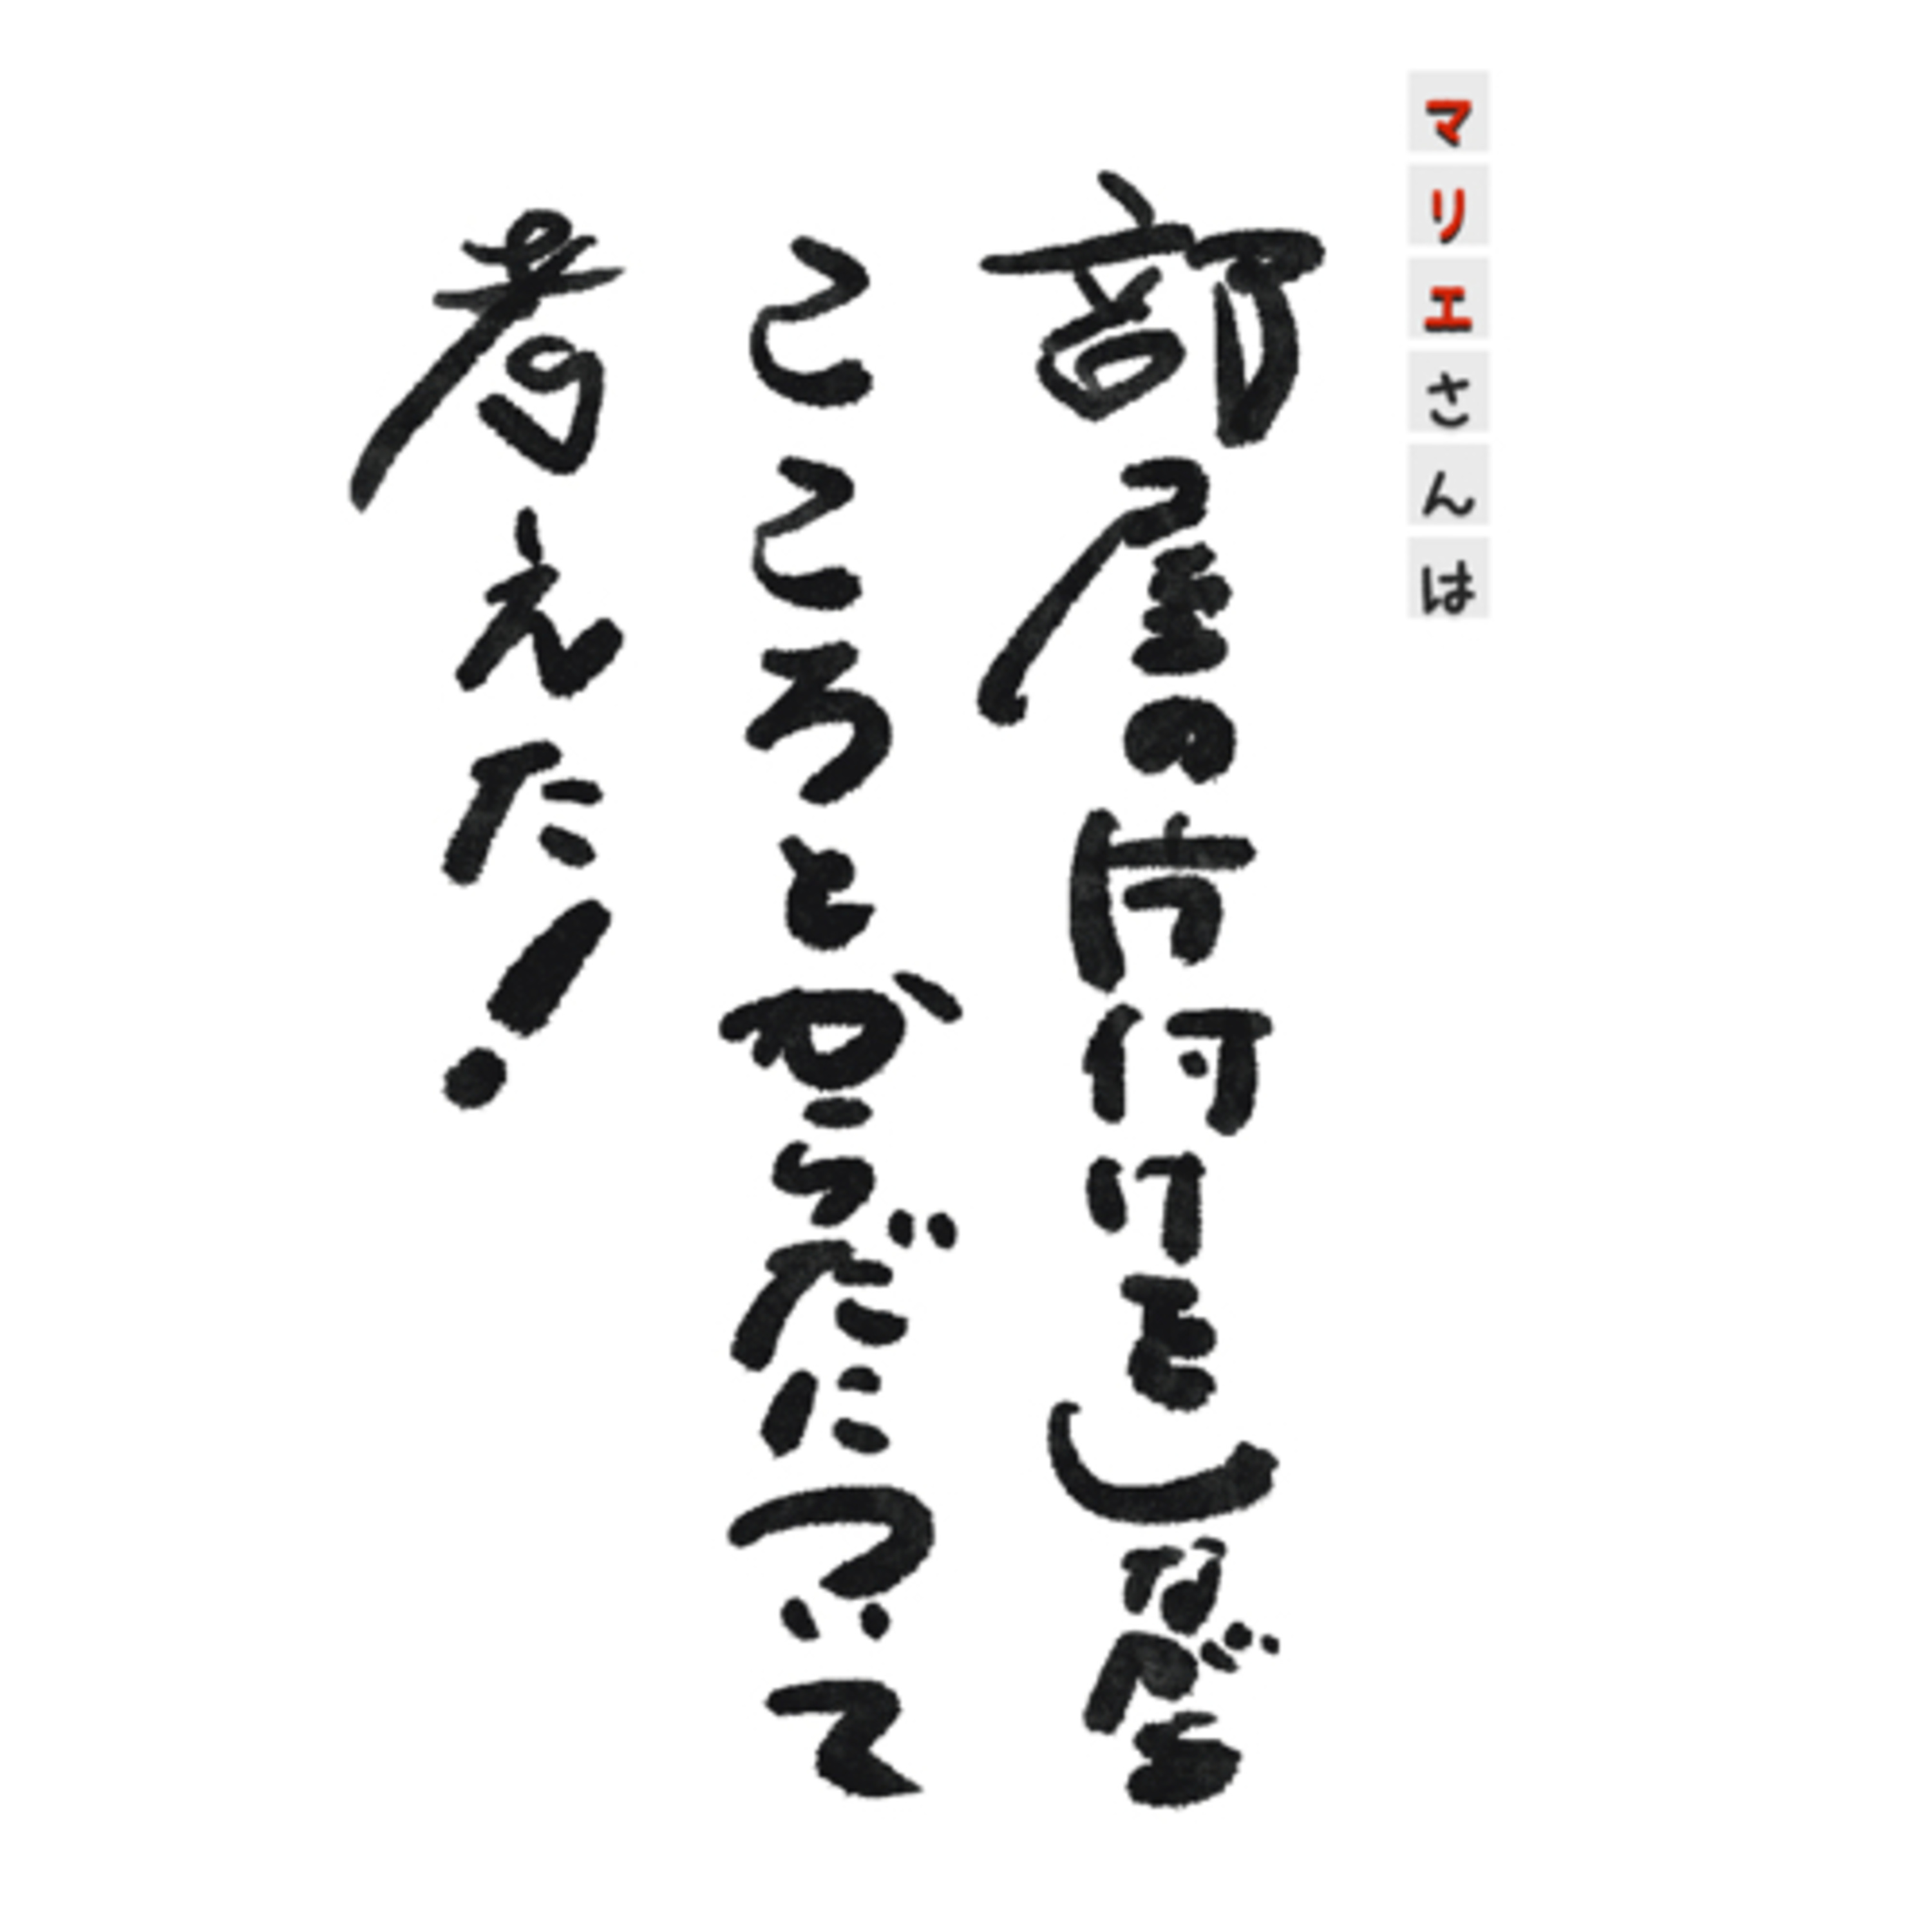 マリエさんは
部屋の片付けをしながら
こころとからだについて
考えた!